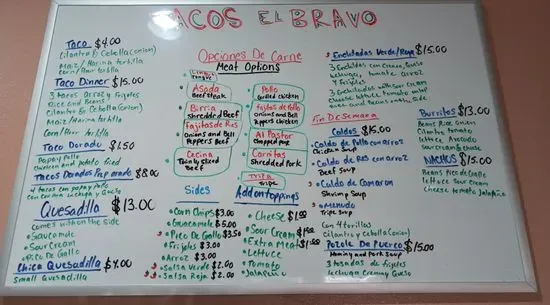 TACOS EL BRAVO
Taco $4.00
Cilantro & Cebolla (onion)
Maiz / Harina tortilla
corn / flour tortilla
Taco Dinner $15.00
3 tacos arroz y frijoles
Rice and Beans
Cilantro & Cebolla (onion)
Maiz / Harina tortilla
Corn / flour tortilla
Taco Dorado $1.50
Papa y Pollo
chicken and potato fried
Tacos Dorados Preparado $8.00
4 tacos con papa y pollo
con crema lechuga y queso
Quesadilla $13.00
comes with the side
Guacamole
Sour Cream
Pico De Gallo
Chica Quesadilla $4.00
small Quesadilla
Opciones De Carne
Meat Options
Lengua
Tongue
Asada
Beef steak
Birria
shredded Beef
Fajitas de Res
Onions and Bell
Peppers Beef
Cecina
Thinly sliced
Beef
Pollo
Grilled chicken
fajitas de Pollo
onions and Bell
Peppers chicken
Al Pastor
Chopped pork
Carnitas
Shredded Pork
Tripa
Tripe
Sides
Corn Chips $3.00
Guacamole $5.00
Pico De Gallo $3.50
Frijoles $3.00
Arroz $3.00
Salsa Verde $2.00
Salsa Roja $2.00
Add on toppings
Cheese $1.00
Sour Cream $1.00
Extra Meat $1.00
Lettuce
Tomato
Jalapeño
Enchiladas Verde/Roja $15.00
3 Enchiladas con Crema, Queso
Lechuga, tomate arroz
y Frijoles
3 Enchiladas with sour cream
cheese lettuce tomato
rice and beans
Fin De Semana
Caldos $15.00
Caldo de Pollo con arroz
Chicken Soup
Caldo de Res con arroz
Beef Soup
Caldo de Camaron
Shrimp Soup
Menudo
Tripe Soup
Con 4 tortillas
Cilantro y Cebolla (onion)
Pozole De Puerco $15.00
Hominy and Pork Soup
3 tostadas de frijoles
Lechuga Crema y Queso
Burritos $13.00
Beans Rice Onion
Cilantro tomato
lettuce Avocado
Sour cream & cheese
NACHOS $15.00
Beans Pico de Gallo
lettuce Sour cream
Cheese tomato Jalapeño